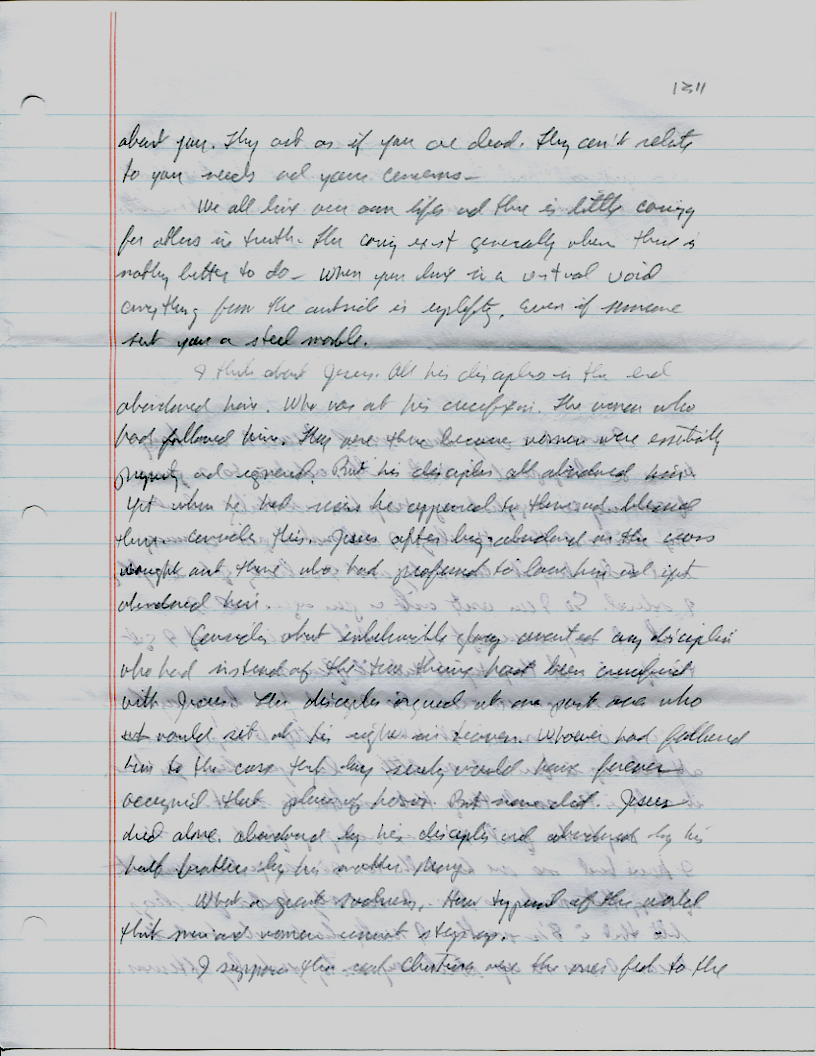 1311
about you. They act as if you are dead. They can't relate
to your needs and your concerns —
We all live our own lifes and there is little caring
for others in truth. The caring exist generally when there is
nothing better to do — When you live in a virtual void
anything from the outside is uplifting, even if someone
sent you a steel marble.
I think about Jesus. All his disciples in the end
abandoned him. Who was at his crucifixion. The women who
had followed him. They were there because women were essentially
property and ignored. But his disciples all abandoned him.
Yet when he had risen he appeared to them and blessed
them. Consider this. Jesus after being abandoned on the cross
sought out those who had professed to love him and yet
abandoned him.
Consider what unbelievable glory awaited any disciple
who had instead of the two thieves have been crucified
with Jesus. The disciples argued at one point over who
would sit at his right in heaven. Whoever had followed
him to the cross that day surely would have forever
occupied that place of honor. But none did. Jesus
died alone, abandoned by his disciples and abandoned by his
half brothers by his mother Mary.
What a great sadness. How typical of the world
that men and women cannot step up.
I suppose the real Christians were the ones fed to the